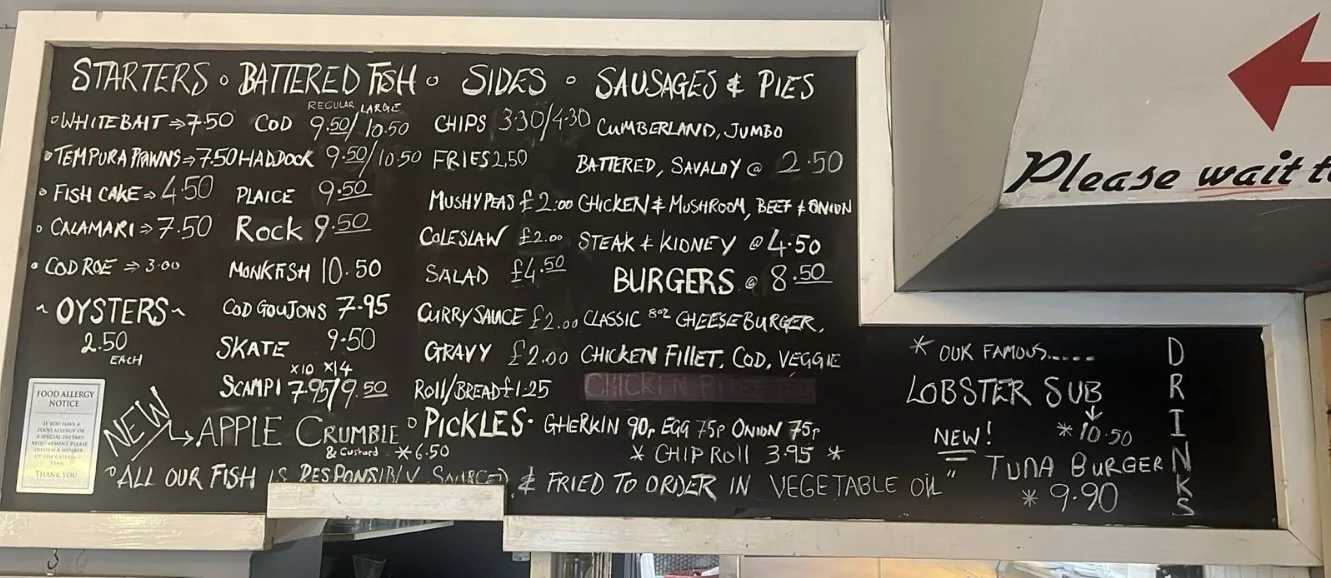 STARTERS • BATTERED FISH • SIDES • SAUSAGES & PIES
• WHITEBAIT ⇒ 7.50
• TEMPURA PRAWNS ⇒ 7.50
• FISH CAKE ⇒ 4.50
• CALAMARI ⇒ 7.50
• COD ROE ⇒ 3.00
~ OYSTERS ~
2.50
EACH
REGULAR LARGE
COD 9.50/10.50
HADDOCK 9.50/10.50
PLAICE 9.50
ROCK 9.50
MONKFISH 10.50
COD GOUJONS 7.95
SKATE 9.50
x10 x14
SCAMPI 7.95/9.50
CHIPS 3.30/4.30
FRIES 2,50
MUSHY PEAS £2.00
COLESLAW £2.00
SALAD £4.50
CURRY SAUCE £2.00
GRAVY £2.00
ROLL/BREAD £1.25
CUMBERLAND, JUMBO
BATTERED, SAVALOY @ 2.50
CHICKEN & MUSHROOM, BEEF & ONION
STEAK & KIDNEY @ 4.50
BURGERS @ 8.50
CLASSIC 8oz CHEESEBURGER,
CHICKEN FILLET, COD, VEGGIE
NEW
↳ APPLE CRUMBLE
& Custard * 6.50
• PICKLES • GHERKIN 90p EGG 75p ONION 75p
* CHIP ROLL 3.95 *
"ALL OUR FISH IS RESPONSIBLY SOURCED & FRIED TO ORDER IN VEGETABLE OIL"
FOOD ALLERGY
NOTICE
IF YOU HAVE A
FOOD ALLERGY OR
A SPECIAL DIETARY
REQUIREMENT PLEASE
INFORM A MEMBER
THANK YOU
* OUR FAMOUS.....
LOBSTER SUB
↓
* 10.50
NEW!
TUNA BURGER
* 9.90
DRINKS
Please wait t